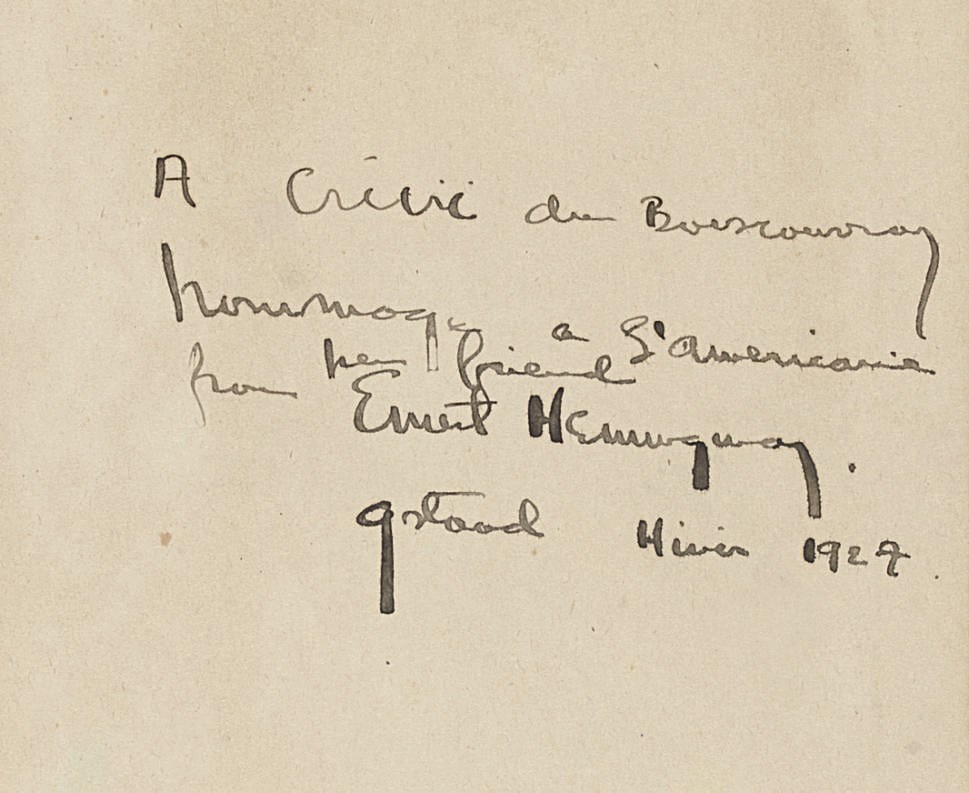 A du Boisrouvray
hommage a
from her friend
Ernest Hemingway.
Gstaad Hiver 1927.